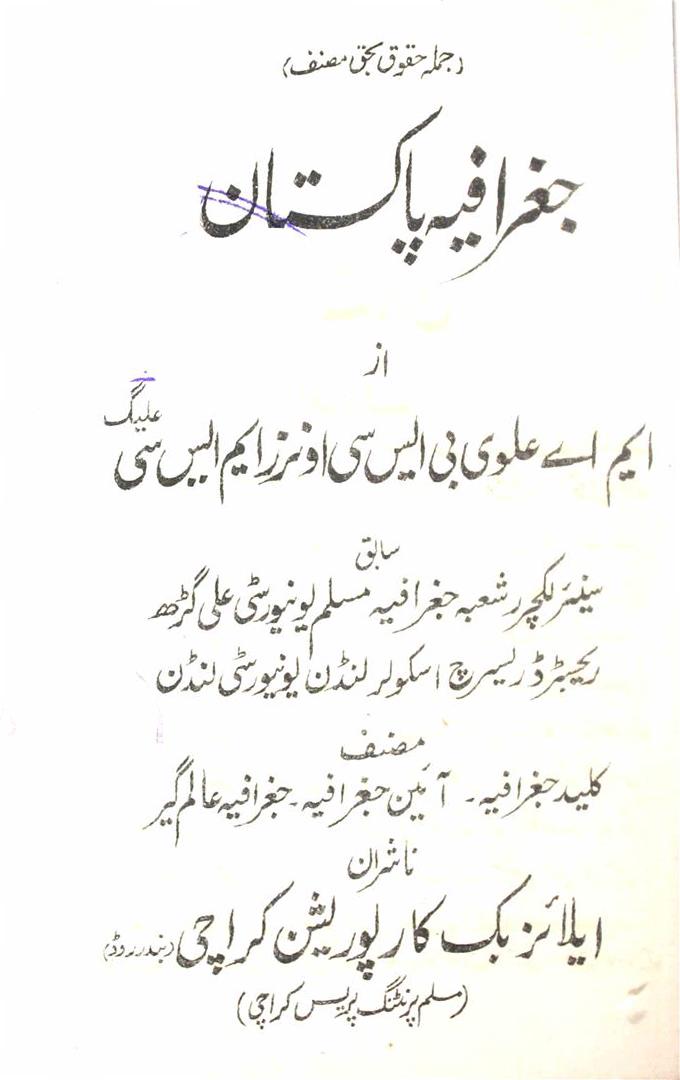 (جملہ حقوق بحق مصنف)
جغرافیہ پاکستان
از
ایم اے علوی بی ایس سی اونرز ایم ایس سی علیگ
سابق
سینئر لکچرر شعبہ جغرافیہ مسلم یونیورسٹی علی گڑھ
ریجسٹرڈ ریسرچ اسکولر لنڈن یونیورسٹی لنڈن
مصنف
کلید جغرافیہ ۔ آئین جغرافیہ ۔ جغرافیہ عالم گیر
ناشران
ایلائز بک کارپوریشن کراچی (بندر روڈ)
(مسلم پرنٹنگ پریس کراچی)